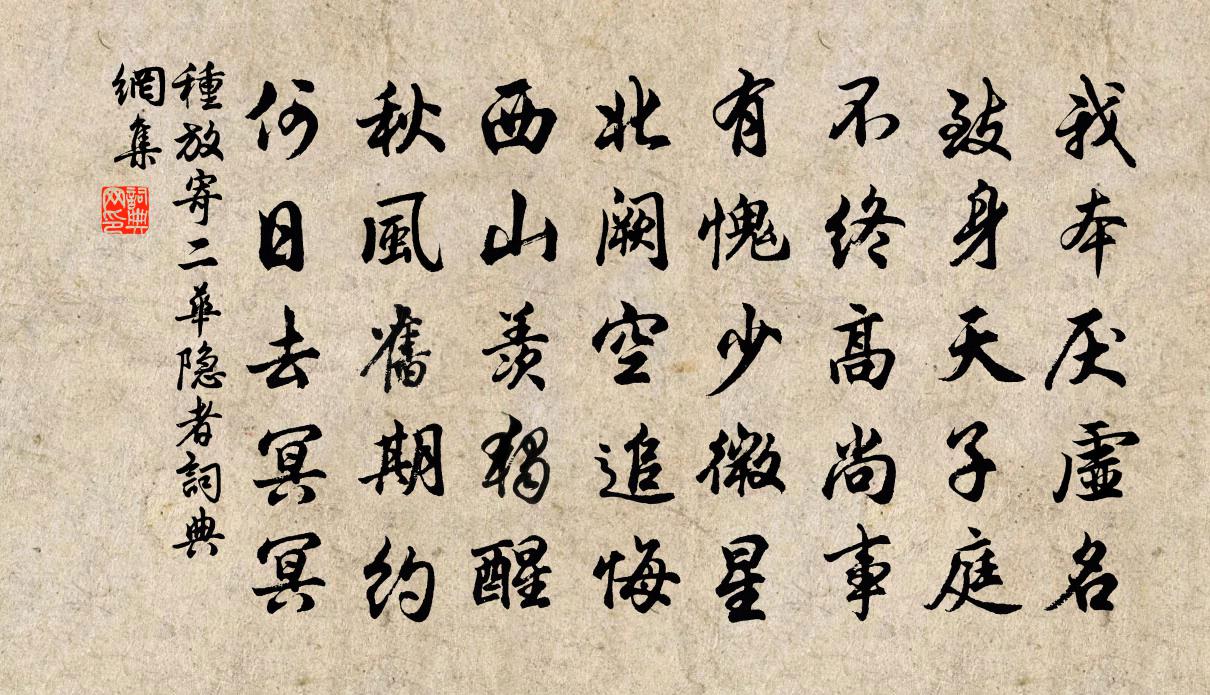 我本厌虛名
致身天子庭
不终高尚事
有愧少微星
北阙空追悔
西山羡獨醒
秋風舊期約
何日去冥冥
種放寄二華隐者詞典
網集
詞典网印